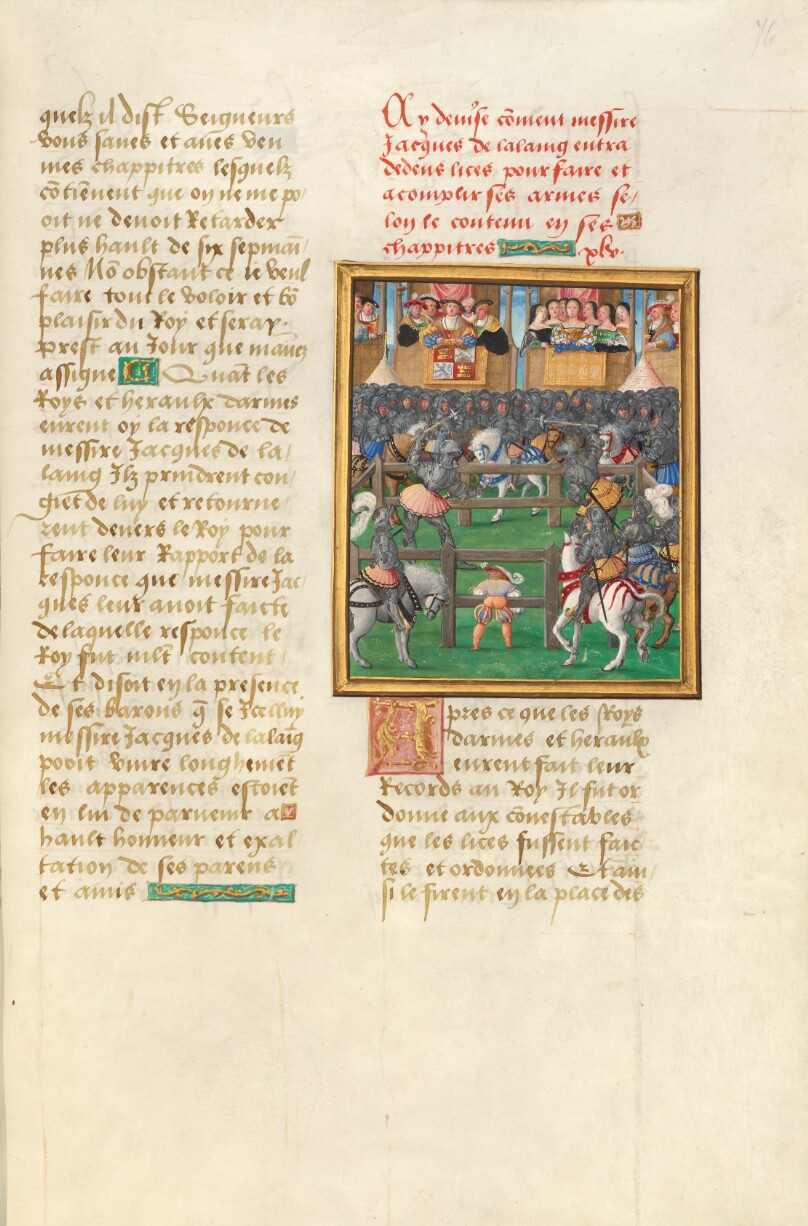 quelz il dist Seigneurs
vous saues et aues veu
mes chappitres lesquelz
cōtiēnent que on ne me po/
oit ne deuoit Retarder
plus hault de six sepmai/
nes Nō obstant ce ie veul
faire tout le voloir et bō
plaisir du Roy et seray
prest au Jour que maues
assigne Quāt les
Roys et heraulx darmes
eurent oy la responce de
messire Jacques de la/
laing Ilz prindrent con/
giet de luy et retourne/
rent deuers le Roy pour
faire leur Rapport de la
responce que messire Jac/
ques leur auoit faicte
de laquelle responce le
Roy fut mlt content
Et disoit en la presence
de ses barons q̄ se Icelluy
messire Jacques de lalaīg
pooit viure longhement
les apparences estoiēt
en lui de paruenir a
hault honneur et exal
tation de ses parens
et amis
76
Cy deuise cōment messire
Jacques de lalaing entra
dedens lices pour faire et
acomplir ses armes se/
lon le contenu en ses
chappitres .xlv.
Apres ce que les Roys
darmes et heraulx
eurent fait leur
Records au Roy Il fut or
donne aux cōnestables
que les lices fussent faic
tes et ordonnees Et ain/
si le firent en la place des